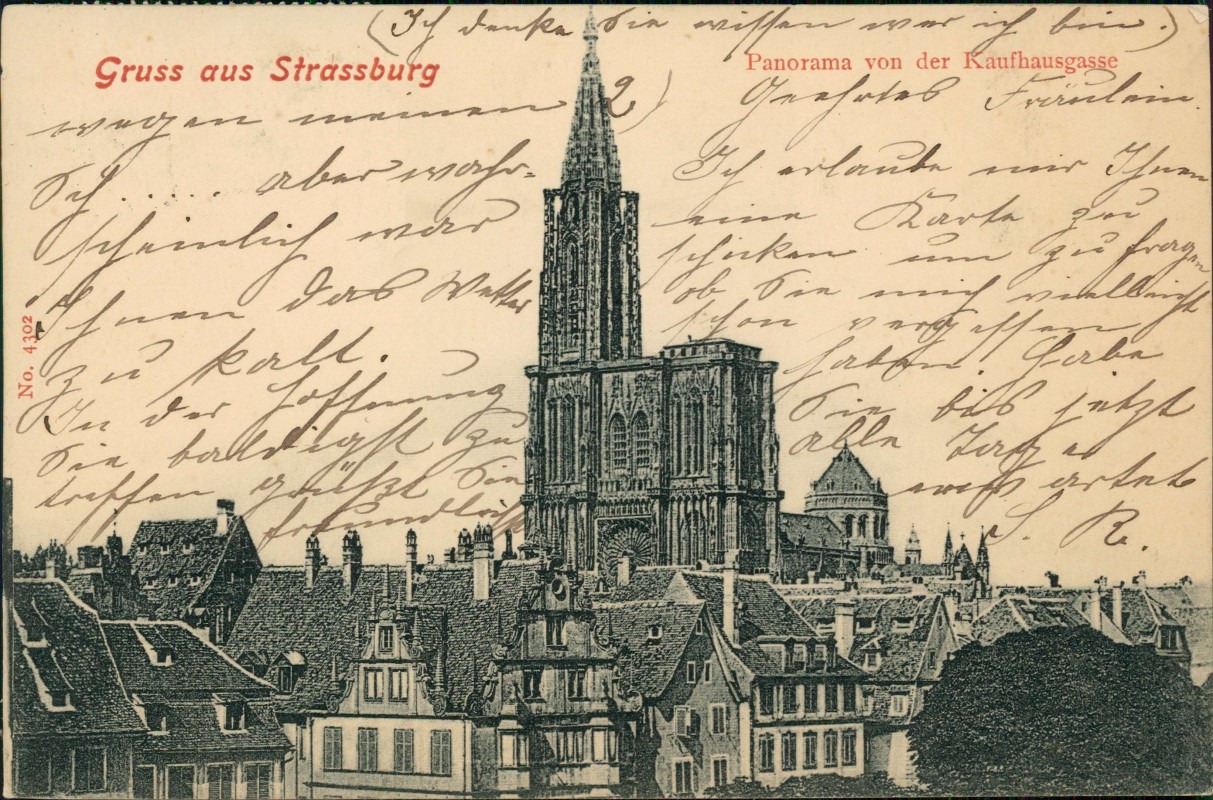 (Ich denke Sie wissen wer ich bin.)
Gruss aus Strassburg
Panorama von der Kaufhausgasse
No. 4302
Geehrtes Fräulein.
Ich erlaube mir Ihnen
eine Karte zu
schicken um zu fragen
ob Sie mich vielleicht
schon vergessen
haben. Habe
Sie bis jetzt
alle Tag er
wartet
S. R.
wegen meinen 2)
Sch .... aber wahr-
scheinlich war
Ihnen das Wetter
zu kalt.
In der Hoffnung
Sie baldigst zu
treffen grüßt Sie
freundlich